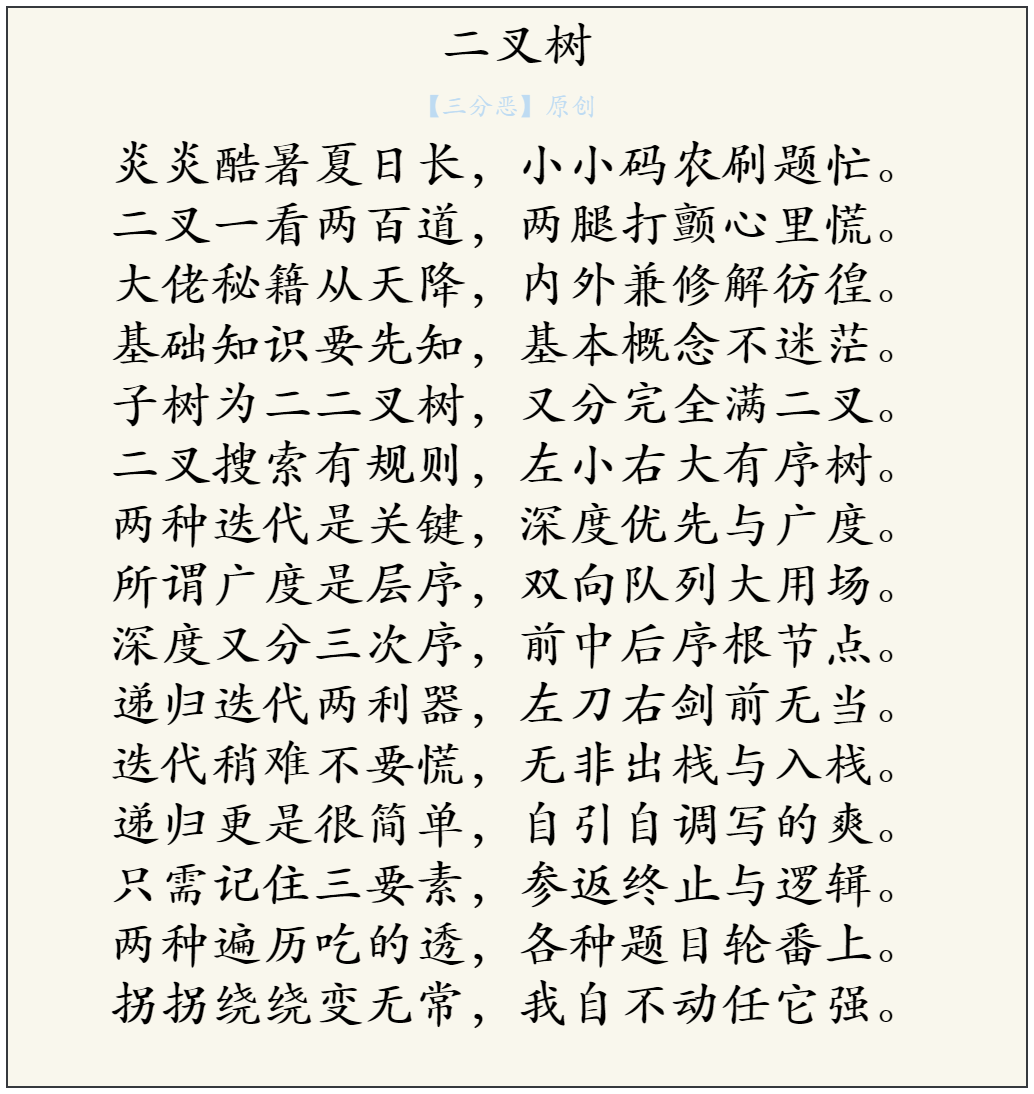 二叉树
【三分恶】原创
炎炎酷暑夏日长，小小码农刷题忙。
二叉一看两百道，两腿打颤心里慌。
大佬秘籍从天降，内外兼修解彷徨。
基础知识要先知，基本概念不迷茫。
子树为二二叉树，又分完全满二叉。
二叉搜索有规则，左小右大有序树。
两种迭代是关键，深度优先与广度。
所谓广度是层序，双向队列大用场。
深度又分三次序，前中后序根节点。
递归迭代两利器，左刀右剑前无当。
迭代稍难不要慌，无非出栈与入栈。
递归更是很简单，自引自调写的爽。
只需记住三要素，参返终止与逻辑。
两种遍历吃的透，各种题目轮番上。
拐拐绕绕变无常，我自不动任它强。